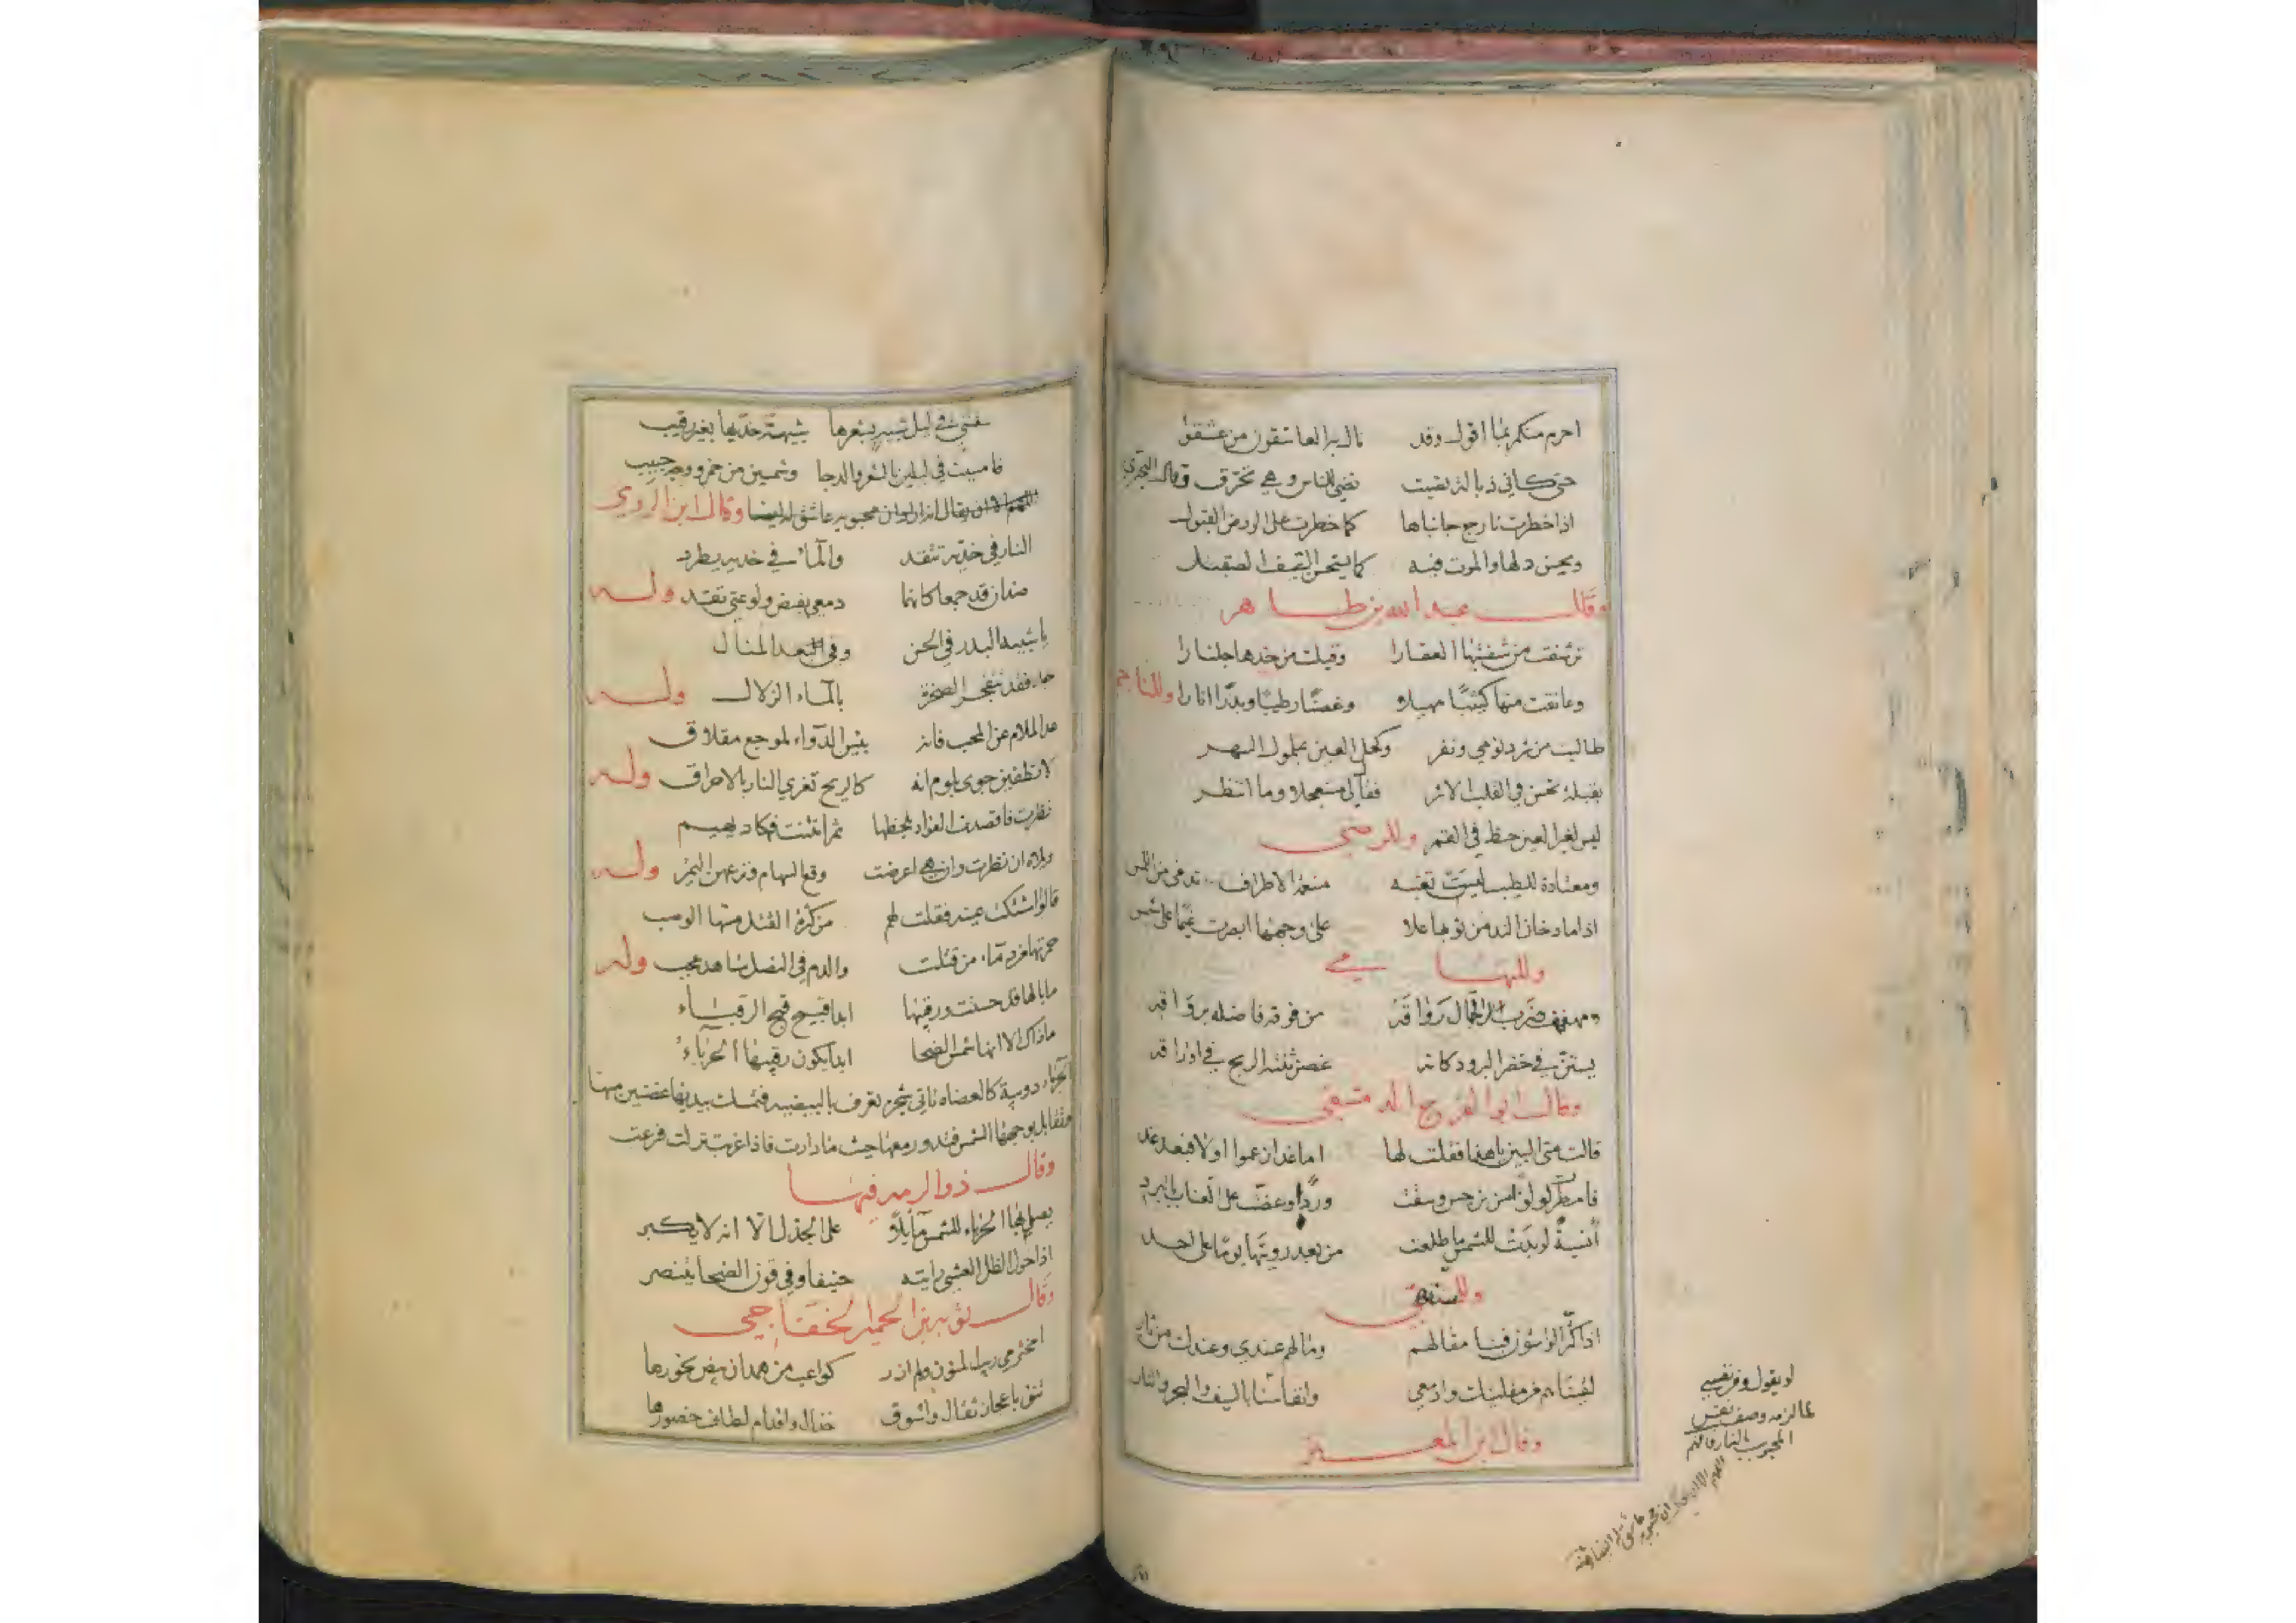 احرم منكم بما اقول وقد نال به العاشقون من عشقوا
حتى كاني ذبالة نصبت تضئ للناس وهي تحترق وقال البحتري
اذا خطرت تارج جانباها كما خطرت على الروض القبول
ويحسن دلها والموت فيه كما يستحسن السيف الصقيل
وقال عبد الله بن طاهر
ترشفت من شفتيها العقارا وقبلت من خدها جلنارا
وعانقت منها كثيبا مهيلا وغصنا رطيبا وبدرا انارا وللناجم
طالبت من شرد نومي ونفر وكحل العين بملول السهر
بقبلة تحسن في القلب الاثر فقال لي مستعجلا وما انتظر
ليس لغير العين حظ في القمر وللرضي
ومعتادة للطيب ليست تغبه منعمة الاطراف تدمى من اللمس
اذا ما دخان الند من ثوبها علا على وجهها ابصرت غيما على شمس
وللتهامي
ومهفهف ضرب الجمال رواقه من فوقه فاضله برواقه
في خضر البرود كانه غصن ثنته الريح في اوراقه
وقال ابو الفرج الدمشقي
قالت متى البين يا هذا فقلت لها اما غدا زعموا اولا فبعد غد
فامطرت لولوا من نرجس وسقت وردا وعضت على العناب بالبرد
أنسية لو بدت للشمس ما طلعت من بعد رويتها يوما على احد
وللمتنبي
اذا كر الواشون فينا مقالهم وما لهم عندي وعندك من ثار
لقيناهم من مقلتيك وادمعي وانفاسنا بالسيف والبحر والنار
وقال ابن المعتز
او يقول وفي نفسي
لما لزمه وصف نفس
المحبوب بالنار
سقتني في ليل شبيه بشعرها شبيهة خديها بغير رقيب
فامسيت في ليلين بالشعر والدجا وشمسين من خمر ووجه حبيب
اللهم الا ان يقال انه اراد ان محبوبه عاشق له ايضا وقال ابن الرومي
النار في خديه تتقد والمآء في خديه يطرد
ضدان قد جمعا كانما دمعي يفيض ولوعتي تقد وله
يا شبيه البدر في الحسن وفي البعد المنال
جد فقد تنفجر الصخرة بالمآء الزلال وله
عد الملام عن المحب فانه بئس الدوآء لموجع مقلاق
لا تطفين جوى بلوم انه كالريح تغري النار بالاحراق وله
نظرت فاقصدت الفواد بلحظها ثم انثنت فكاد يهيم
ويلاه ان نظرت وان هي اعرضت وقع السهام ونزعهن اليم وله
قالوا اشتكت عينه فقلت لهم من كثرة القتل مسها الوصب
حمرتها من دمآء من قتلت والدم في النصل شاهد عجب وله
ما بالها قد حسنت ورقيبها ابدا قبيح قبح الرقباء
ما ذاك الا انها شمس الضحا ابدا يكون رقيبها الحرباء
الحرباء دويبة كالعضاه تاتي شجرة تعرف بالتنضبة فتمسك بيديها غصنين منها
وتقابل بوجهها الشمس فتدور معها حيث ما دارت فاذا غربت نزلت فرعت
وقال ذو الرمه فيها
يصلي بها الحرباء للشمس مآئلا على الجذل الا انه لا يكبر
اذا حول الظل العشي رايته حنيفا وفي قرن الضحا يتنصر
وقال توبة بن الحمير الخفاجي
ايخترمي ريب المنون ولم ازر كواعب من همدان بيض نحورها
تنوء باعجاز ثقال واسوق خدال واقدام لطاف خصورها